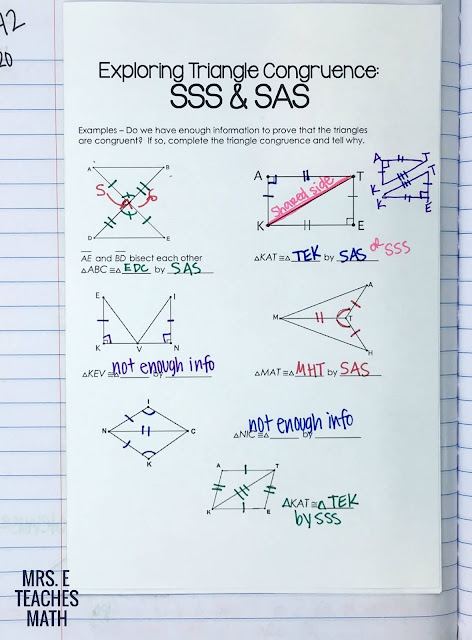 A2
20
Exploring Triangle Congruence:
SSS & SAS
Examples – Do we have enough information to prove that the triangles
are congruent? If so, complete the triangle congruence and tell why.
A B
S
C
D E
AE and BD bisect each other
△ABC ≅△ EDC by SAS
A T
Shared side
K E
A T
K T
K E
△KAT ≅△ TEK by SAS or SSS
E I
K V N
△KEV ≅△ not enough info by
A
M T
H
△MAT ≅△ MHT by SAS
I
N C
K
not enough info
△NIC ≅△ by
A T
K E
△KAT ≅ △ TEK
by SSS
MRS. E
TEACHES
MATH